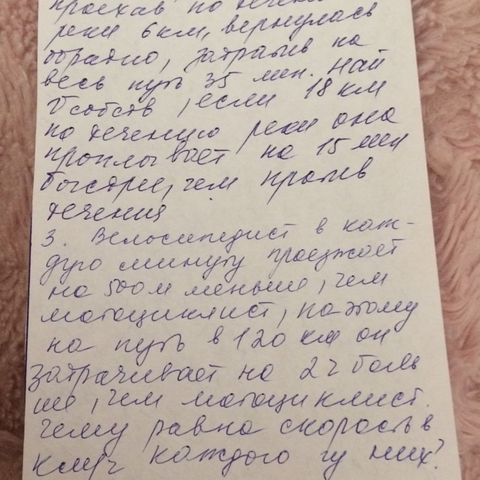 проехав по течен
реки 6 км, вернулась
обратно, затратив на
весь путь 35 мин. Най
Vсобств, если 18 км
по течению реки она
проплывает на 15 мин
быстрее, чем против
течения
3. Велосипедист в каж-
дую минуту проезжает
на 500 м меньше, чем
мотоциклист, поэтому
на путь в 120 км он
затрачивает на 2 ч боль
ше, чем мотоциклист.
Чему равна скорость в
км/ч каждого из них?